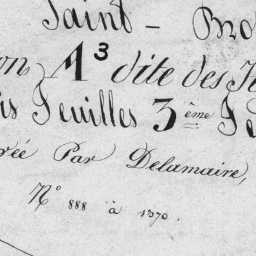 Saint - Bro
on A³ dite des
is Feuilles 3ème Fe
rée Par Delamaire,
N° 888 à 1370.